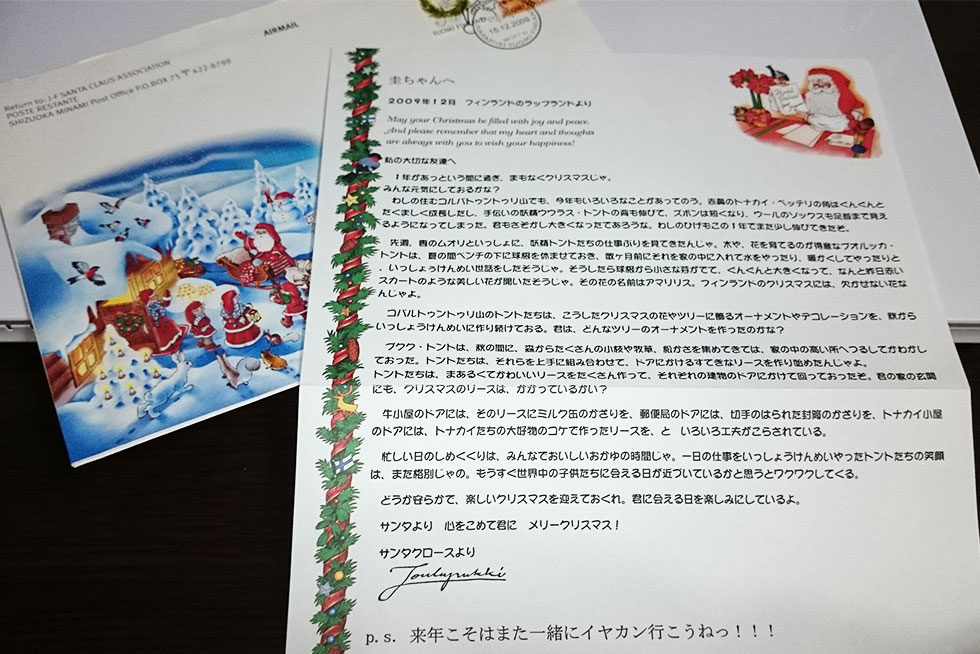 AIRMAIL
15.12.2009
Return to: J-F SANTA CLAUS ASSOCIATION
POSTE RESTANTE
SHIZUOKA MINAMI Post Office P.O.BOX 75 〒422-8799
圭ちゃんへ
2009年12月 フィンランドのラップランドより
May your Christmas be filled with joy and peace.
And please remember that my heart and thoughts
are always with you to wish your happiness!
私の大切な友達へ
1年があっという間に過ぎ、まもなくクリスマスじゃ。
みんな元気にしておるかな?
わしの住むコルバトゥントゥリ山でも、今年もいろいろなことがあってのう。赤鼻のトナカイ・ペッテリの角はぐんぐんと
たくましく成長したし、手伝いの妖精ウクラス・トントの背も伸びて、ズボンは短くなり、ウールのソックスも足首まで見え
るようになってしまった。君もさぞかし大きくなったであろうな。わしのひげもこの1年でまた少し伸びてきたぞ。
先週、妻のムオリといっしょに、妖精トントたちの仕事ぶりを見てきたんじゃ。木や、花を育てるのが得意なプオルッカ・
トントは、夏の間ベンチの下に球根を休ませておき、数ヶ月前にそれを家の中に入れて水をやったり、暖かくしてやったりと
、いっしょうけんめい世話をしたそうじゃ。そうしたら球根から小さな芽がでて、ぐんぐんと大きくなって、なんと昨日赤い
スカートのような美しい花が開いたそうじゃ。その花の名前はアマリリス。フィンランドのクリスマスには、欠かせない花な
んじゃよ。
コルバトゥントゥリ山のトントたちは、こうしたクリスマスの花やツリーに飾るオーナメントやデコレーションを、秋から
いっしょうけんめいに作り続けておる。君は、どんなツリーのオーナメントを作ったのかな?
プクク・トントは、秋の間に、森からたくさんの小枝や牧草、松かさを集めてきては、家の中の高い所へつるしてかわかし
ておった。トントたちは、それらを上手に組み合わせて、ドアにかけるすてきなリースを作り始めたんじゃよ。
トントたちは、まあるくてかわいいリースをたくさん作って、それぞれの建物のドアにかけて回っておったぞ。君の家の玄関
にも、クリスマスのリースは、かかっているかい?
牛小屋のドアには、そのリースにミルク缶のかざりを、郵便局のドアには、切手のはられた封筒のかざりを、トナカイ小屋
のドアには、トナカイたちの大好物のコケで作ったリースを、と いろいろ工夫がこらされている。
忙しい日のしめくくりは、みんなでおいしいおかゆの時間じゃ。一日の仕事をいっしょうけんめいやったトントたちの笑顔
は、また格別じゃの。もうすぐ世界中の子供たちに会える日が近づいているかと思うとワクワクしてくる。
どうか安らかで、楽しいクリスマスを迎えておくれ。君に会える日を楽しみにしているよ。
サンタより 心をこめて君に メリークリスマス!
サンタクロースより
Joulupukki
p.s. 来年こそはまた一緒にイヤカン行こうねっ!!!